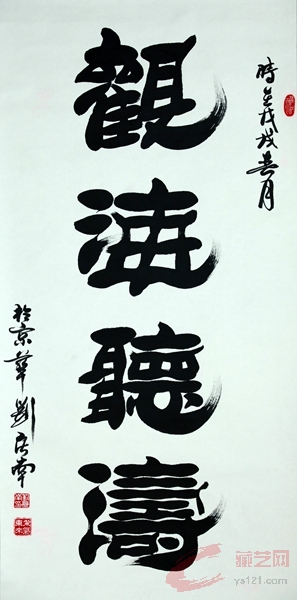 時在戊戌春月
觀海聽濤
於京華劉居南
藏艺网
ys121.com